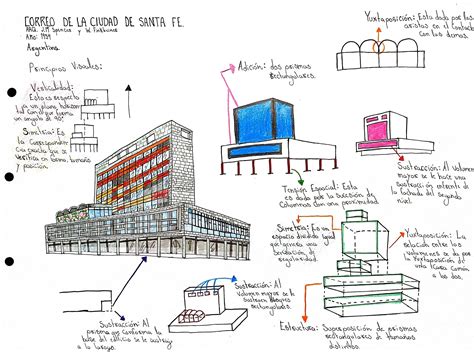 CORREO DE LA CIUDAD DE SANTA FE.
ARQ. J.M Spencer y W. Finkbinder
Año: 1959
Argentina
Principios Visuales:
Verticalidad:
Esto es respecto
a un plano horizontal
con el que forma
un angulo de 90°.
Simetria: Es
la correspondencia
exacta que se
verifica en forma, tamaño
y posición.
Sustracción: Al
prisma que conforma la
base del edificio se le sustrae
a lo largo.
Adición: dos prismas
rectangulares.
Tensión Espacial: Esta
es dada por la sucesión de
columnas con una proximidad.
Sustracción: Al
volumen mayor se le
sustraen bloques
rectangulares.
Yuxtaposición: Esta dada por las
aristas en el contacto
con las demas.
Sustracción: Al volumen
mayor se le hace una
sustracción enfrente de
la fachada del segundo
nivel
Simetria: Es un
espacio dividido igual
que genera una
sensación de
regularidad.
Yuxtaposición: La
relación entre los
volumenes se da por
la yuxtaposición de
una cara común
a los dos.
Estructura: Superposición de prismas
rectangulares de tamaños
distintos.